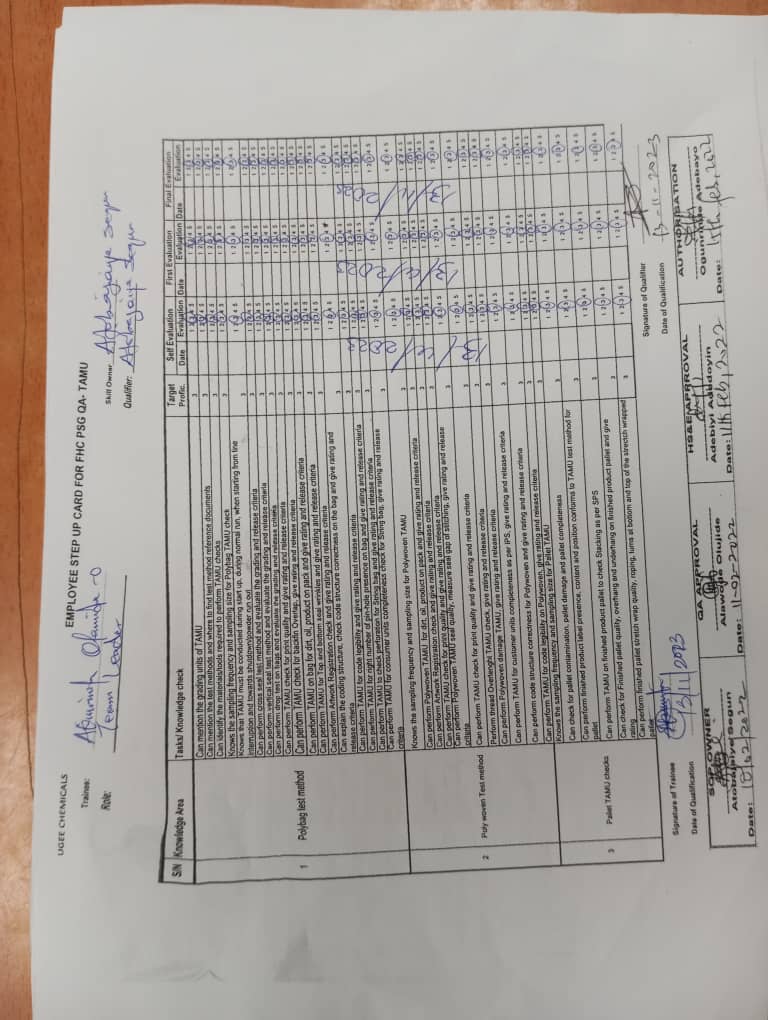 UGEE CHEMICALS
EMPLOYEE STEP UP CARD FOR FHC PSG QA- TAMU
Trainee:
Role: Team Leader
Skill Owner Atobajaiye Segun
Qualifier: Atobajaiye Segun
S/N Knowledge Area Tasks/ Knowledge check Target Profic. Self Evaluation Date Evaluation First Evaluation Date Evaluation Final Evaluation Date Evaluation
1 Polybag test method
Can mention the grading units of TAMU 3 1 2 3 4 5 1 2 3 4 5 1 2 3 4 5
Can mention the test methods and where to find test method reference documents 3 1 2 3 4 5 1 2 3 4 5 1 2 3 4 5
Can identify the materials/tools required to perform TAMU checks 3 1 2 3 4 5 1 2 3 4 5 1 2 3 4 5
Knows the sampling frequency and sampling size for Polybag TAMU check 3 1 2 3 4 5 1 2 3 4 5 1 2 3 4 5
Knows that TAMU must be conducted during start up, during normal run, when starting from line
interruptions and towards shutdown/powder run out 3 1 2 3 4 5 1 2 3 4 5 1 2 3 4 5
Can perform cross seal test method and evaluate the grading and release criteria 3 1 2 3 4 5 1 2 3 4 5 1 2 3 4 5
Can perform vertical seal test method and evaluate the grading and release criteria 3 1 2 3 4 5 1 2 3 4 5 1 2 3 4 5
Can perform drop test on bags and evaluate the grading and release criteria 3 1 2 3 4 5 1 2 3 4 5 1 2 3 4 5
Can perform TAMU check for print quality and give rating and release criteria 3 1 2 3 4 5 1 2 3 4 5 1 2 3 4 5
Can perform TAMU check for backfin Overlap, give rating and release criteria 3 1 2 3 4 5 1 2 3 4 5 1 2 3 4 5
Can perform TAMU on bag for dirt, oil, product on pack and give rating and release criteria 3 1 2 3 4 5 1 2 3 4 5 1 2 3 4 5
Can perform TAMU for Top and bottom seal wrinkles and give rating and release criteria 3 1 2 3 4 5 1 2 3 4 5 1 2 3 4 5
Can perform Artwork Registration check and give rating and release criteria 3 1 2 3 4 5 1 2 3 4 5 1 2 3 4 5
Can explain the coding structure, check code structure correctness on the bag and give rating and
release criteria 3 1 2 3 4 5 1 2 3 4 5 1 2 3 4 5
Can perform TAMU for code legibility and give rating and release criteria 3 1 2 3 4 5 1 2 3 4 5 1 2 3 4 5
Can perform TAMU for right number of pin-hole presence on bag and give rating and release criteria 3 1 2 3 4 5 1 2 3 4 5 1 2 3 4 5
Can perform TAMU to check perforation presence for String bag and give rating and release criteria 3 1 2 3 4 5 1 2 3 4 5 1 2 3 4 5
Can perform TAMU for consumer units completeness check for String bag, give rating and release
criteria 3 1 2 3 4 5 1 2 3 4 5 1 2 3 4 5
2 Poly woven Test method
Knows the sampling frequency and sampling size for Polywoven TAMU 3 1 2 3 4 5 1 2 3 4 5 1 2 3 4 5
Can perform Polywoven TAMU for dirt, oil, product on pack and give rating and release criteria 3 1 2 3 4 5 1 2 3 4 5 1 2 3 4 5
Can perform Artwork Registration check and give rating and release criteria 3 1 2 3 4 5 1 2 3 4 5 1 2 3 4 5
Can perform TAMU check for print quality and give rating and release criteria 3 1 2 3 4 5 1 2 3 4 5 1 2 3 4 5
Can perform Polywoven TAMU seal quality, measure seal gap of stitching, give rating and release
criteria 3 1 2 3 4 5 1 2 3 4 5 1 2 3 4 5
Can perform TAMU check for print quality and give rating and release criteria 3 1 2 3 4 5 1 2 3 4 5 1 2 3 4 5
Perform thread Overlenght TAMU check, give rating and release criteria 3 1 2 3 4 5 1 2 3 4 5 1 2 3 4 5
Can perform Polywoven damage TAMU, give rating and release criteria 3 1 2 3 4 5 1 2 3 4 5 1 2 3 4 5
Can perform TAMU for customer units completeness as per IPS, give rating and release criteria 3 1 2 3 4 5 1 2 3 4 5 1 2 3 4 5
Can perform code structure correctness for Polywoven and give rating and release criteria 3 1 2 3 4 5 1 2 3 4 5 1 2 3 4 5
Can perform TAMU for code legibility on Polywoven, give rating and release criteria 3 1 2 3 4 5 1 2 3 4 5 1 2 3 4 5
3 Pallet TAMU checks
Knows the sampling frequency and sampling size for Pallet TAMU 3 1 2 3 4 5 1 2 3 4 5 1 2 3 4 5
Can check for pallet contamination, pallet damage and pallet completeness 3 1 2 3 4 5 1 2 3 4 5 1 2 3 4 5
Can perform finished product label presence, content and position conforms to TAMU test method for
pallet 3 1 2 3 4 5 1 2 3 4 5 1 2 3 4 5
Can perform TAMU on finished product pallet to check Stacking as per SPS 3 1 2 3 4 5 1 2 3 4 5 1 2 3 4 5
Can check for Finished pallet quality, overhang and underhang on finished product pallet and give
rating
Can perform finished pallet stretch wrap quality, roping, turns at bottom and top of the stretch wrapped
pallet 3 1 2 3 4 5 1 2 3 4 5 1 2 3 4 5
13/11/2023
Signature of Trainee
Date of Qualification 13/11/2023
Signature of Qualifier
Date of Qualification 13-11-2023
SOP OWNER
Atobajaiye Segun
Date: 10/02/2022
QA APPROVAL
Alawoje Olujide
Date: 11-02-2022
HS&E APRROVAL
Adebiyi Adedoyin
Date: 11th Feb, 2022
AUTHORISATION
Ogunrinde Adebayo
Date: 11th Feb, 2022